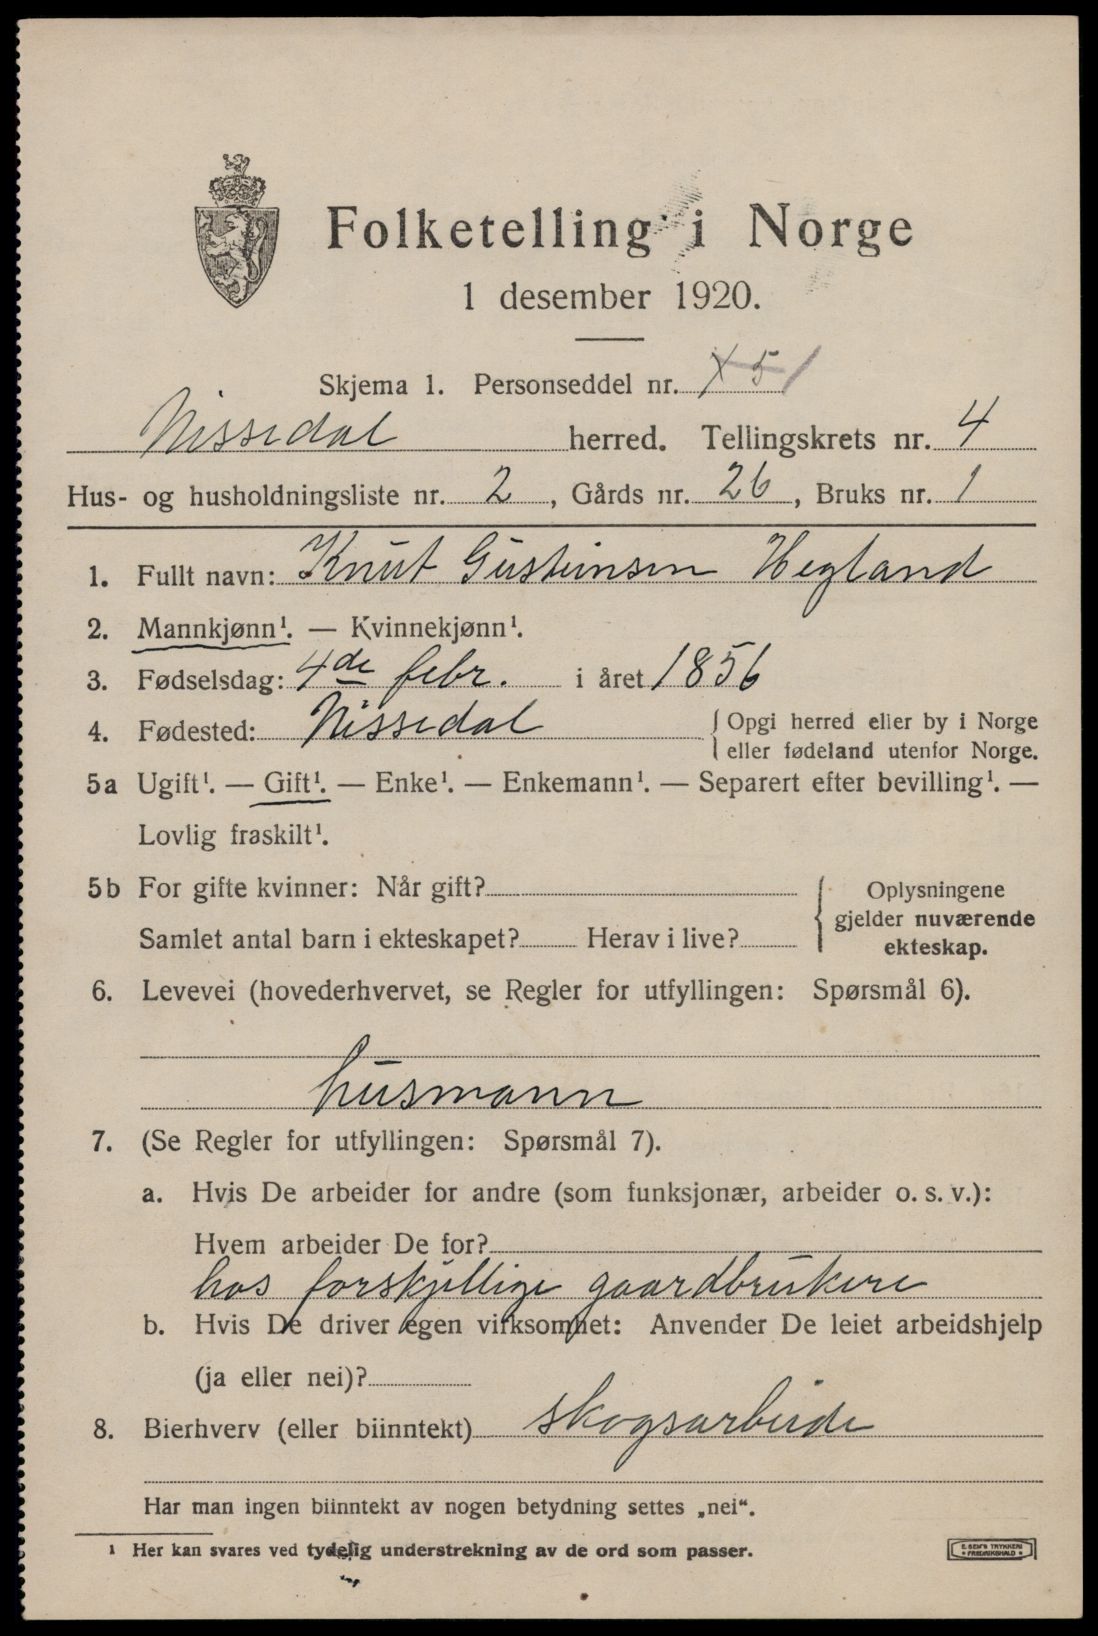 Folketelling i Norge
1 desember 1920.
Skjema 1. Personseddel nr. 51
Nissedal herred. Tellingskrets nr. 4
Hus- og husholdningsliste nr. 2, Gårds nr. 26, Bruks nr. 1
1. Fullt navn: Knut Gusteinsen Hegland
2. Mannkjønn¹. — Kvinnekjønn¹.
3. Fødselsdag: 4de febr. i året 1856
4. Fødested: Nissedal { Opgi herred eller by i Norge
eller fødeland utenfor Norge.
5a Ugift¹. — Gift¹. — Enke¹. — Enkemann¹. — Separert efter bevilling¹. —
Lovlig fraskilt¹.
5b For gifte kvinner: Når gift?
Samlet antal barn i ekteskapet? Herav i live?
{ Oplysningene
gjelder nuværende
ekteskap.
6. Levevei (hovederhvervet, se Regler for utfyllingen: Spørsmål 6).
husmann
7. (Se Regler for utfyllingen: Spørsmål 7).
a. Hvis De arbeider for andre (som funksjonær, arbeider o. s. v.):
Hvem arbeider De for?
hos forskjellige gaardbrukere
b. Hvis De driver egen virksomhet: Anvender De leiet arbeidshjelp
(ja eller nei)?
8. Bierhverv (eller biinntekt) skogsarbeide
Har man ingen biinntekt av nogen betydning settes „nei“.
¹ Her kan svares ved tydelig understrekning av de ord som passer.
E. SEM'S TRYKKERI
• FREDRIKSHALD •